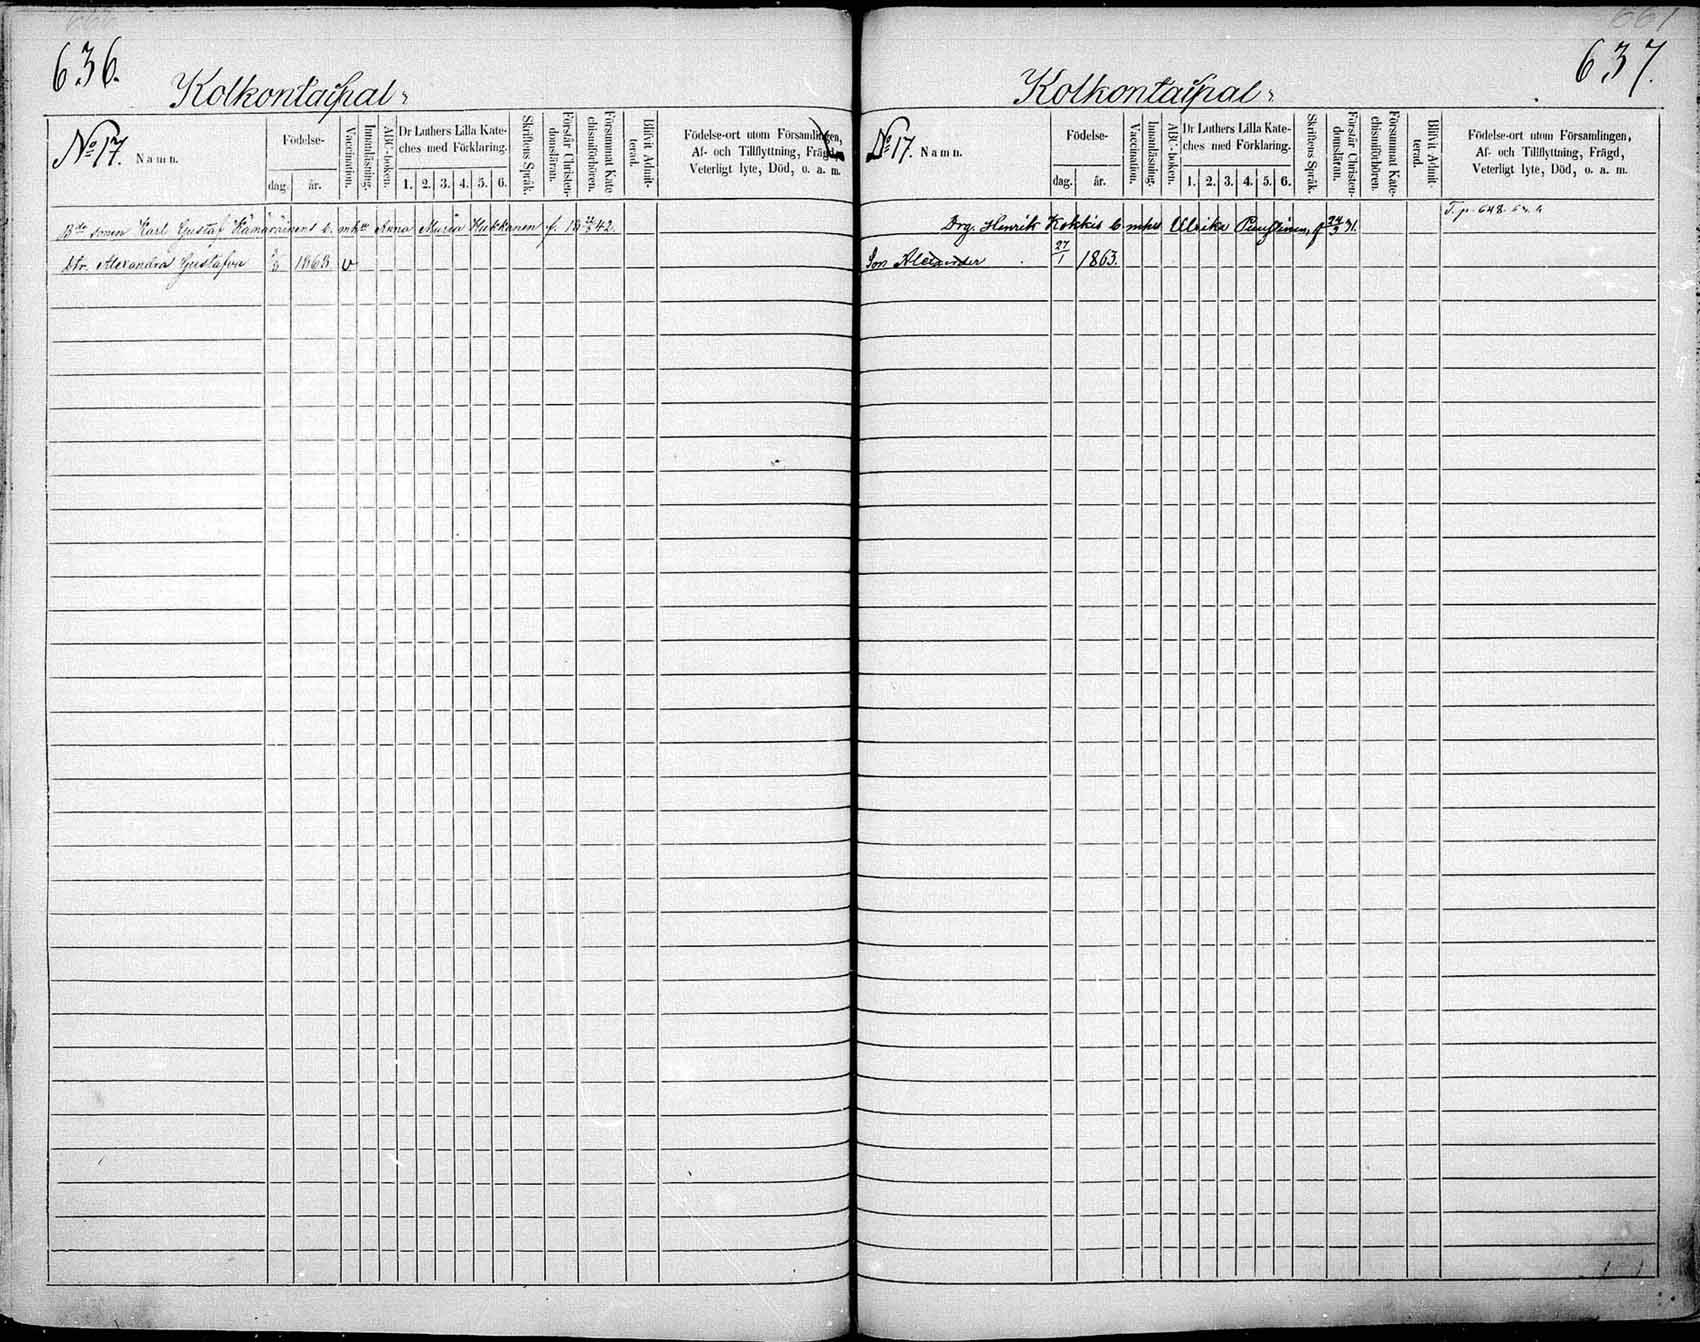 636.
Kolkontaipal
No 17. Namn.
Födelse-
dag. år.
Vaccination.
Innanläsning.
ABC-boken.
Dr Luthers Lilla Kate-
ches med Förklaring.
1. 2. 3. 4. 5. 6.
Skriftens Språk.
Förstår Christen-
domsläran.
Försummat Kate-
chismiförhören.
Blifvit Admit-
terad.
Födelse-ort utom Församlingen,
Af- och Tillflyttning, Frägd,
Veterligt lyte, Död, o. a. m.
Bde sonen Karl Gustaf Hämäläinens b. mhu Anna Maria Kukkanen f. 42.
Dtr. Alexandra Gustafva 1868 v
661
637.
Kolkontaipal
No 17. Namn.
Födelse-
dag. år.
Vaccination.
Innanläsning.
ABC-boken.
Dr Luthers Lilla Kate-
ches med Förklaring.
1. 2. 3. 4. 5. 6.
Skriftens Språk.
Förstår Christen-
domsläran.
Försummat Kate-
chismiförhören.
Blifvit Admit-
terad.
Födelse-ort utom Församlingen,
Af- och Tillflyttning, Frägd,
Veterligt lyte, Död, o. a. m.
Drg. Henrik Kokkis b. mhu Ulrika f 24/3 31. T. p. 648.
Son Alexander 27/1 1863.